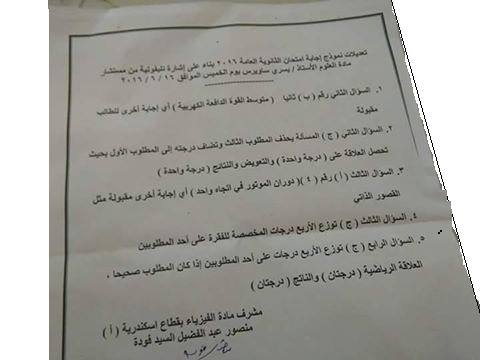 تعديلات نموذج إجابة امتحان الثانوية العامة ٢٠١٦ بناء على إشارة تليفونية من مستشار
مادة العلوم الأستاذ / يسري ساويرس يوم الخميس الموافق ١٦ / ٦ / ٢٠١٦
١. السؤال الثاني رقم ( ب ) ثانيا ( متوسط القوة الدافعة الكهربية ) أي إجابة أخرى للطالب
مقبولة
٢. السؤال الثاني ( ج ) المسألة يحذف المطلوب الثالث وتضاف درجته إلى المطلوب الأول بحيث
تحصل العلاقة على ( درجة واحدة ) والتعويض والناتج ( درجة واحدة )
٣. السؤال الثالث ( أ ) رقم ( ٤ ) ( دوران الموتور في اتجاه واحد ) أي إجابة أخرى مقبولة مثل
القصور الذاتي
٤. السؤال الثالث ( ج ) توزع الأربع درجات المخصصة للفقرة على أحد المطلوبين
٥. السؤال الرابع ( ج ) توزع الأربع درجات على أحد المطلوبين إذا كان المطلوب صحيحا ،
العلاقة الرياضية ( درجتان ) والناتج ( درجتان )
مشرف مادة الفيزياء بقطاع اسكندرية ( أ )
منصور عبد الفضيل السيد فودة